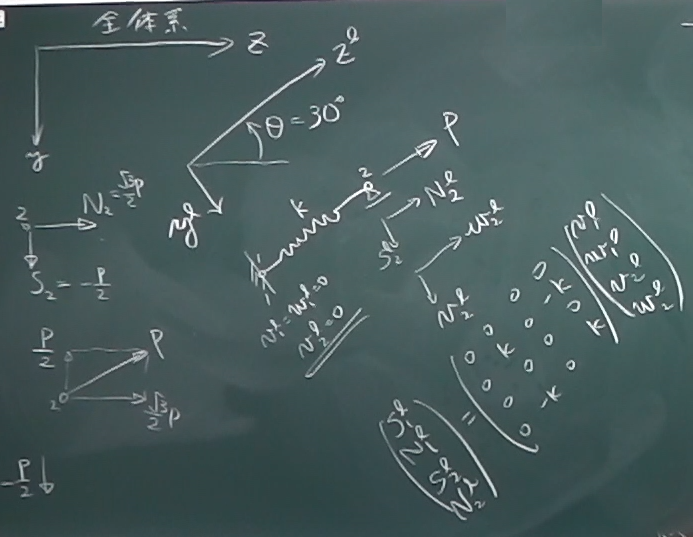 全体系
Z
y
Zˡ
θ = 30°
yˡ
k
2
P
N₂ˡ
S₂ˡ
w₂ˡ
v₂ˡ
v₁ˡ = w₁ˡ = 0
v₂ˡ = 0
2
N₂ = √3P/2
S₂ = -P/2
P/2
P
2
√3/2 P
-P/2
(S₁ˡ N₁ˡ S₂ˡ N₂ˡ) =
0 0 0 0
0 k 0 -k
0 0 0 0
0 -k 0 k
(v₁ˡ w₁ˡ v₂ˡ w₂ˡ)